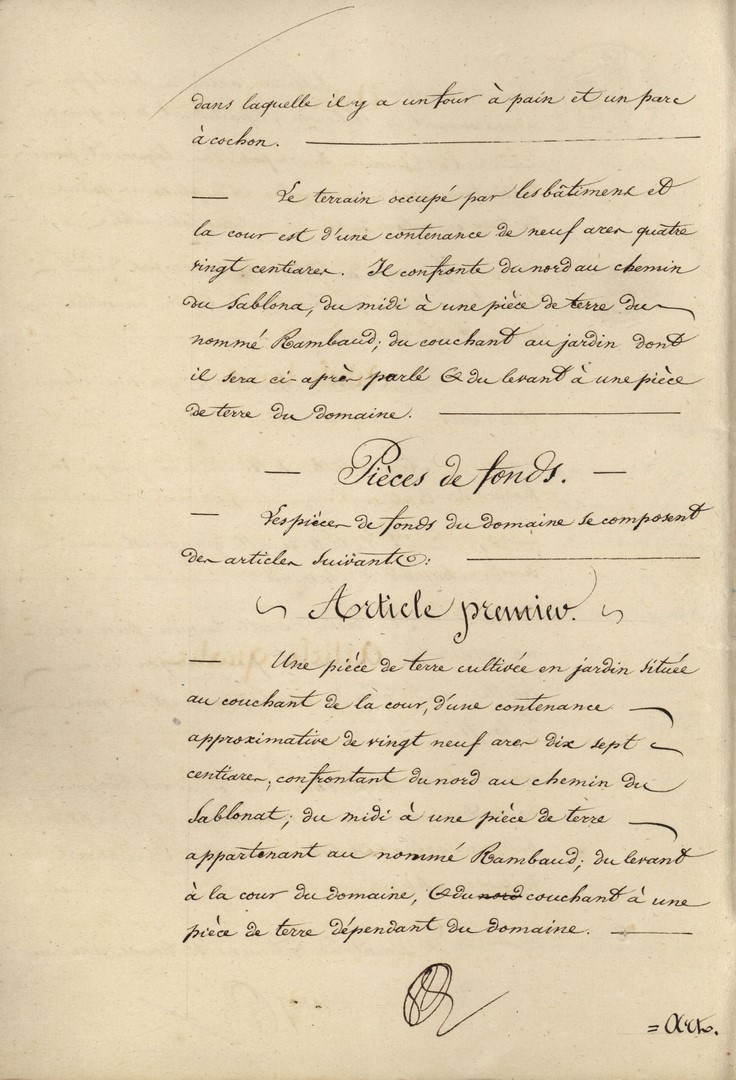 dans laquelle il y a un four à pain et un parc
à cochon.
— Le terrain occupé par les bâtimens et
la cour est d'une contenance de neuf ares quatre
vingt centiares. Il confronte du nord au chemin
du Sablona, du midi à une pièce de terre du
nommé Rambaud; du couchant au jardin dont
il sera ci-après parlé & du levant à une pièce
de terre du domaine.
— Pièces de fonds. —
— Les pièces de fonds du domaine se composent
des articles suivants:
Article premier.
— Une pièce de terre cultivée en jardin située
au couchant de la cour, d'une contenance
approximative de vingt neuf ares dix sept
centiares, confrontant du nord au chemin du
Sablonat; du midi à une pièce de terre
appartenant au nommé Rambaud; du levant
à la cour du domaine, & du nord couchant à une
pièce de terre dépendant du domaine.
= Art.